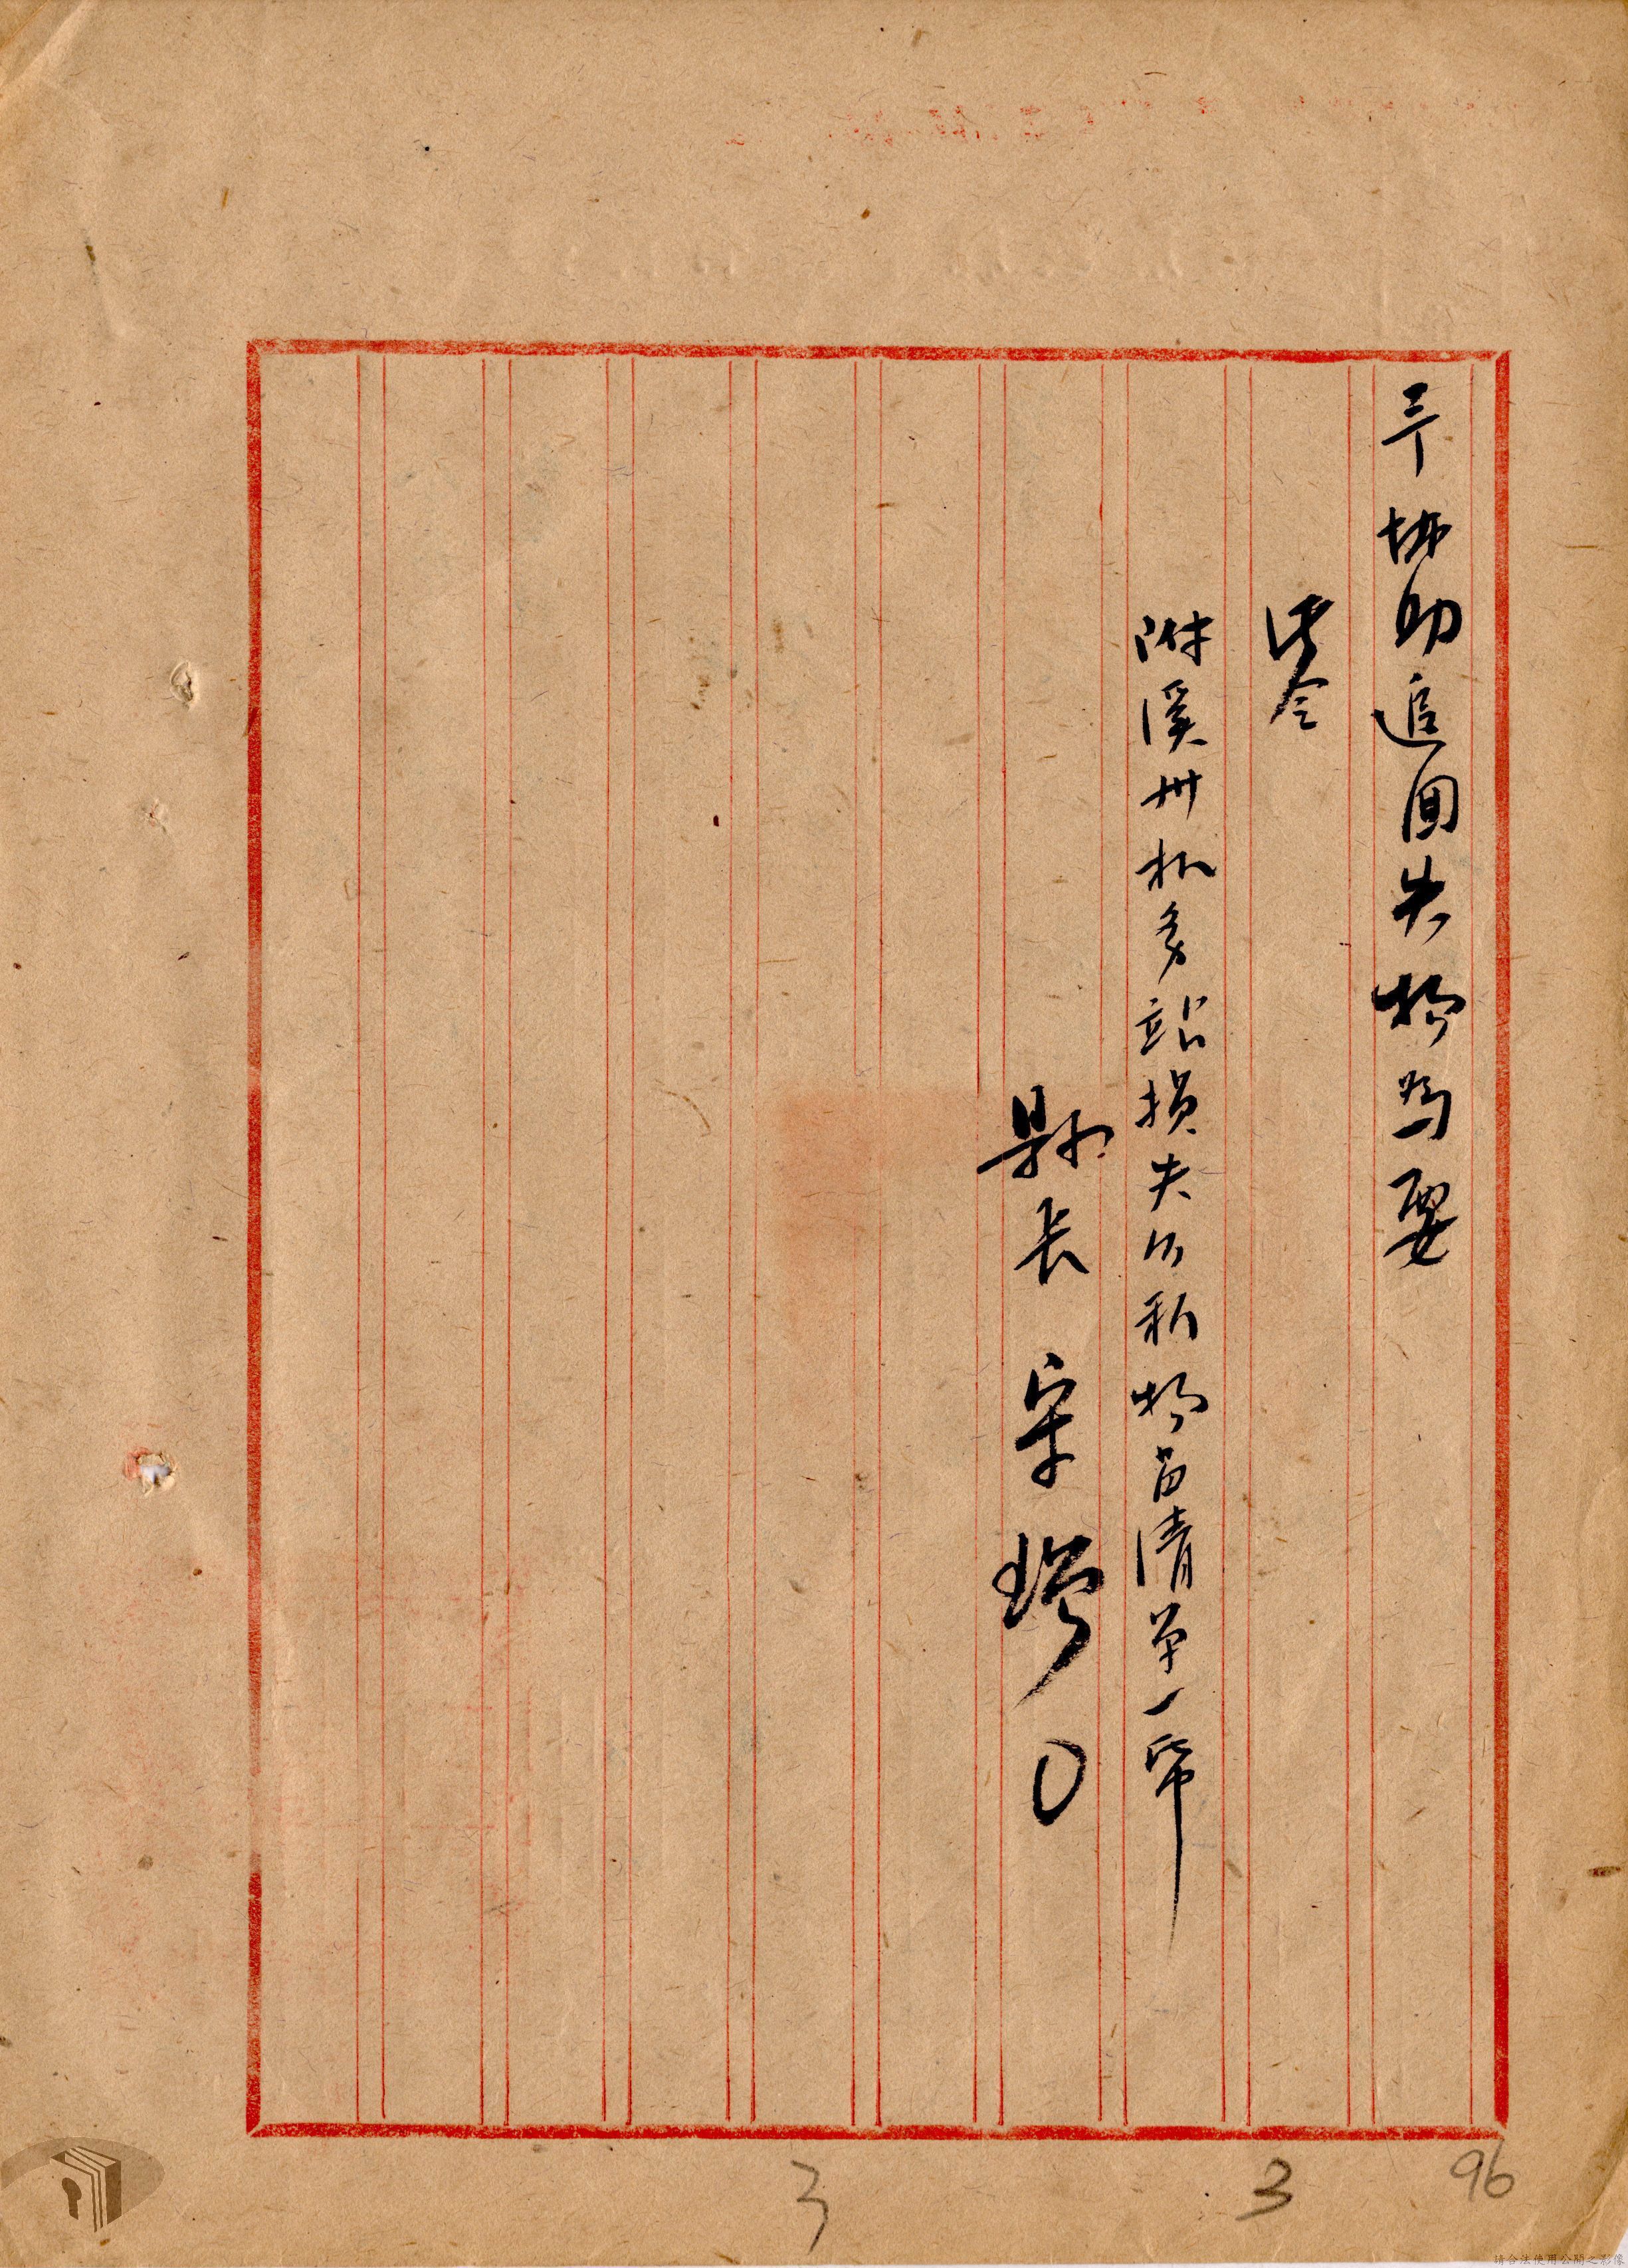 協助追回失物為要
此令
附溪州机务站損失公私物品清单一帋
縣長 宋增〇
96
3
3
請合法使用公開之影像